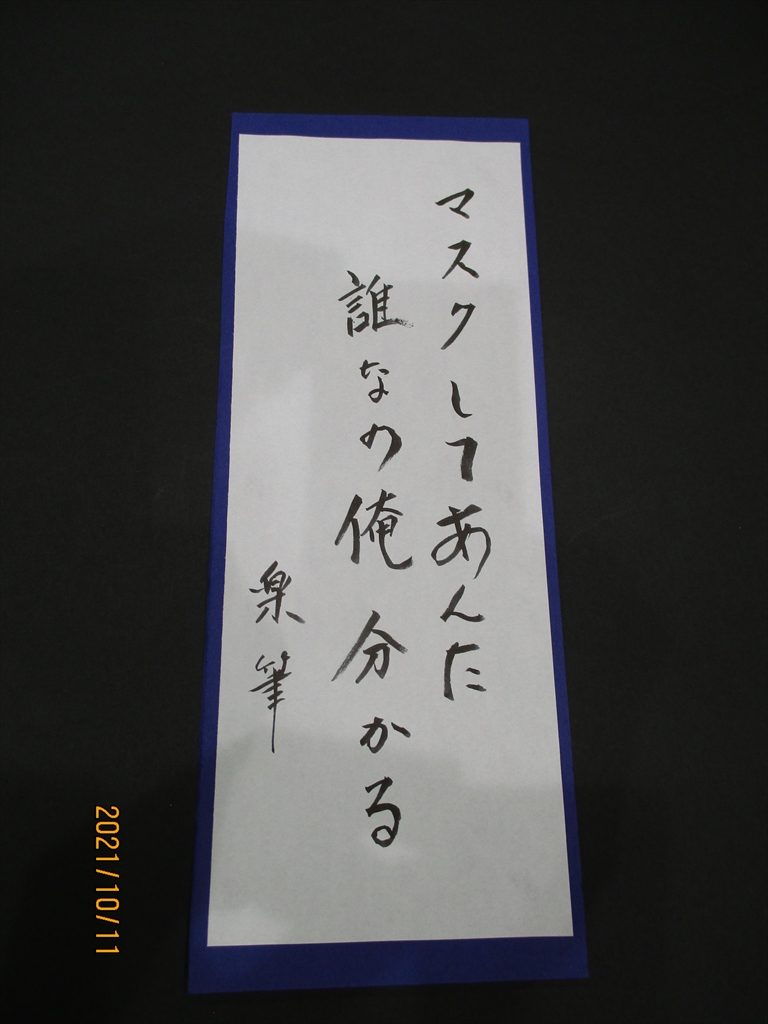 マスクしてあんた
誰なの俺分かる
楽筆
2021/10/11